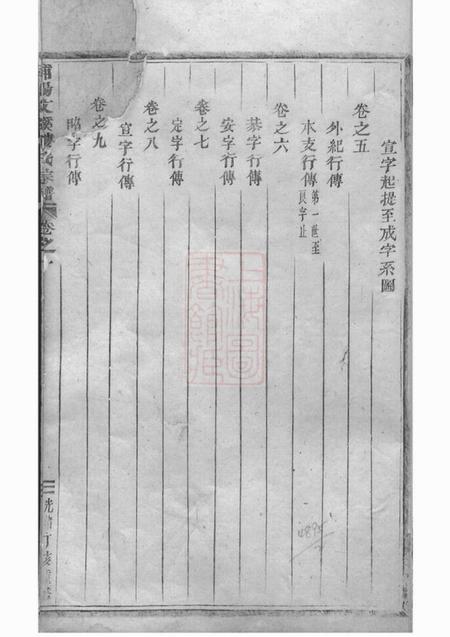 宣字起提至成字系圖
卷之五
外紀行傳
本支行傳 第一世至
良字止
卷之六
恭字行傳
安字行傳
卷之七
定字行傳
卷之八
宣字行傳
卷之九
昭字行傳
卷之
上海圖書館藏